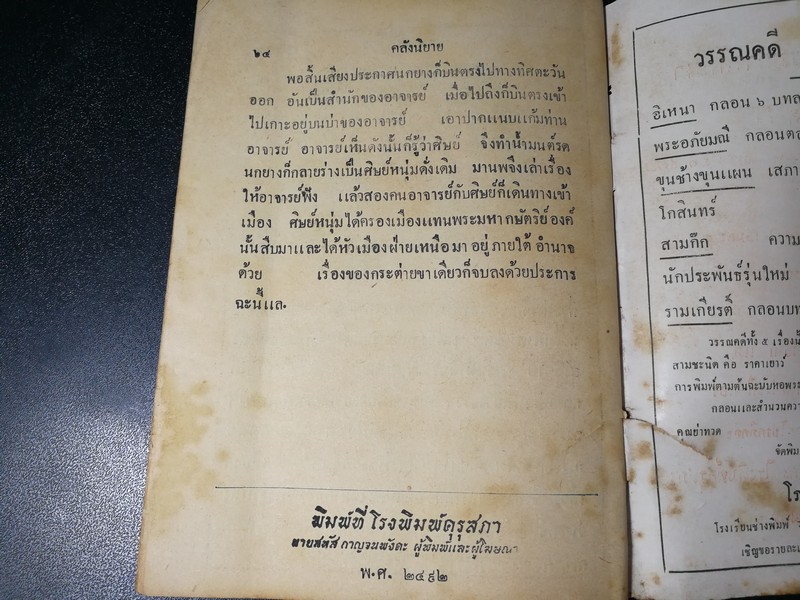 ๒๔
คลังนิยาย
พอสิ้นเสียงประกาศนกยางก็บินตรงไปทางทิศตะวัน
ออก อันเป็นสำนักของอาจารย์ เมื่อไปถึงก็บินตรงเข้า
ไปเกาะอยู่บนบ่าของอาจารย์ เอาปากแนบแก้มท่าน
อาจารย์ อาจารย์เห็นดังนั้นก็รู้ว่าศิษย์ จึงทำน้ำมนต์รด
นกยางก็กลายร่างเป็นศิษย์หนุ่มดั่งเดิม มานพจึงเล่าเรื่อง
ให้อาจารย์ฟัง แล้วสองคนอาจารย์กับศิษย์ก็เดินทางเข้า
เมือง ศิษย์หนุ่มได้ครองเมืองแทนพระมหากษัตริย์องค์
นั้นสืบมาและได้หัวเมืองฝ่ายเหนือมาอยู่ภายใต้อำนาจ
ด้วย เรื่องของกระต่ายขาเดียวก็จบลงด้วยประการ
ฉะนี้แล.
พิมพ์ที่โรงพิมพ์คุรุสภา
นายสหัส กาญจนพังคะ ผู้พิมพ์และผู้โฆษณา
พ.ศ. ๒๔๙๒
วรรณคดี
อิเหนา กลอน ๖ บทล
พระอภัยมณี กลอนตล
ขุนช้างขุนแผน เสภา
โกสินทร์
สามก๊ก ความ
นักประพันธ์รุ่นใหม่
รามเกียรติ์ กลอนบท
วรรณคดีทั้ง ๕ เรื่องนี้
สามชะนิด คือ ราคาเยาว์
การพิมพ์ตามต้นฉะบับหอพระ
กลอนและสำนวนควา
คุณย่าทวด
จัดพิม
โร
โรงเรียนช่างพิมพ์
เชิญขอรายละเ